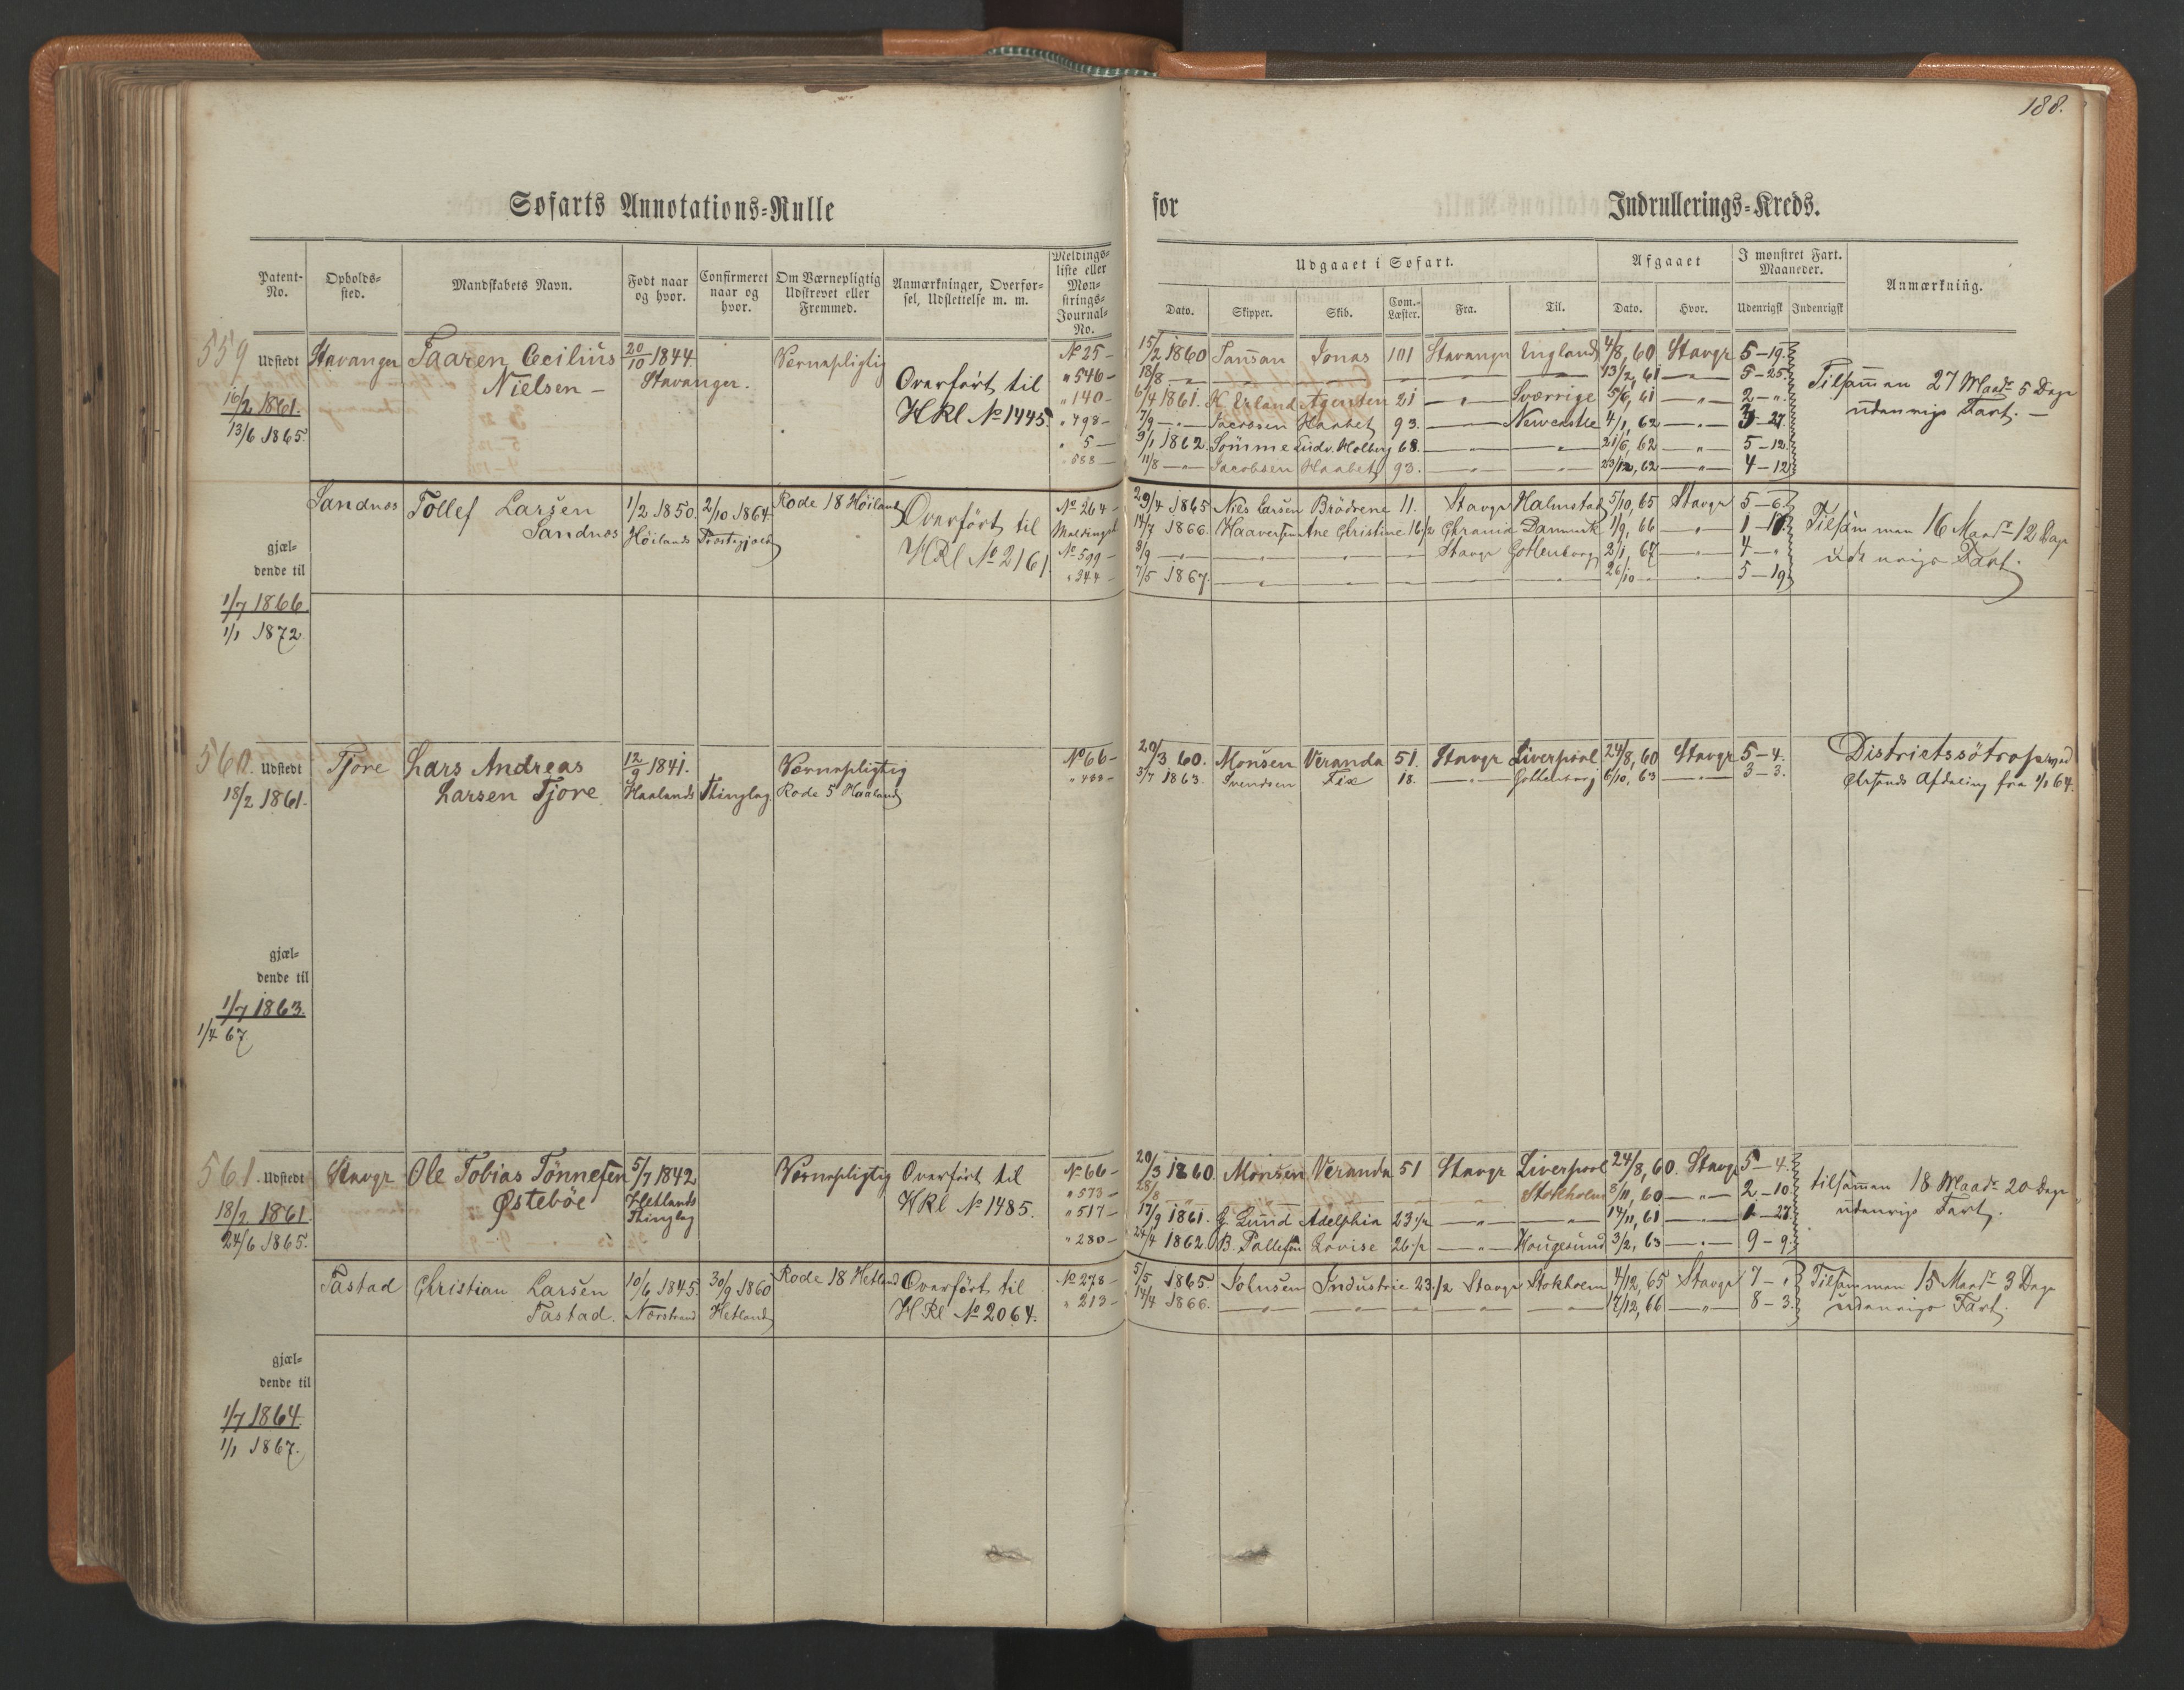 188.
Søfarts Annotations-Rulle for Indrullerings-Kreds.
Patent-No. Opholds-sted. Mandskabets Navn. Født naar og hvor. Confirmeret naar og hvor. Om Værnepligtig Udskrevet eller Fremmed. Anmærkninger, Overførsel, Udslettelse m. m. Meldings-liste eller Mønstrings-Journal-No.
Udgaaet i Søfart. Afgaaet I mønstret Fart. Maaneder. Anmærkning.
Dato. Skipper. Skib. Com.-Læster. Fra. Til. Dato. Hvor. Udenrigsk Indenrigsk
559 Udstedt Stavanger Saaren Cecilius 20/10 1844. Vernepligtig № 25 15/2 1860 Jonas 101 Stavangr England 4/8, 60 Stavgr 5-19.
Nielsen Stavanger. " 546 18/8 13/2, 61 5-25
16/2 1861. Overført til " 140 6/4 1861. Erland 21 Sverrige 5/6, 61 2-"
13/6 1865. HRl № 1445. " 498 7/9 Jacobsen Haabet 93. Newcastle 4/1, 62 3-27.
" 5 3/1 1862. Sømme Ludv. Holberg 68. 21/6, 62 5-12.
" 588 11/8 Jacobsen Haabet 93. 23/12, 62 4-12
Tilsamman 27 Maadr 5 Dage
udenrigs Fart.
Sandnæs Tollef Larsen 1/2 1850. 2/10 1864. Rode 18 Høiland Overført til № 264 29/4 1865 Niels Larsen Brødrene 11. Stavgr Halmstad 5/10, 65 Stavgr 5-6.
Sandnæs Høilands Præstegjæld HRl № 2161. 14/7 1866. Haaversen Ane Christine 16 1/2 Danmark 1/9, 66
№ 599 3/9 Stavgr Gottenborg 2/1, 67 4-"
" 344 7/5 1867. 26/10 5-19
Tilsamman 16 Maadr 12 Dage
udenrigs Fart.
gjæl-
dende til
1/7 1866.
1/1 1872
560. Udstedt Tjore Lars Andreas 12/9 1841. Vernepligtig № 66 20/3 60. Monsen Veranda 51. Stavgr Liverpool 24/8, 60 Stavgr 5-4.
18/2 1861. Larsen Tjore Haalands Thinglag Rode 5 Haaland 3/7 1863. Svendsen Fix 18. Gottenborg 6/10, 63 3-3.
Afdeling fra 1/1 64.
gjæl-
dende til
1/7 1863.
1/4 67
561. Udstedt Stavgr Ole Tobias Tønnesen 5/7 1842 Vernepligtig Overført til № 66 20/3 1860 Monsen Veranda 51 Stavgr Liverpool 24/8, 60. Stavgr 5-4.
Østebøe Hetlands Thinglag HRl № 1485. " 573 28/8 Stokholm 8/11, 60 2-10
18/2 1861. " 517 17/9 1861. J Lund Adelphia 23 1/2 14/11, 61 1-27
24/6 1865. " 280 24/4 1862 B. Tallefsen Lovise 26 1/2 Hougesund 3/2, 63 9-9
tilsamman 18 Maadr 20 Dage
udenrigs Fart.
Tastad Christian Larsen 10/6 1845. 30/9 1860 Rode 18 Hetland Overført til № 278 5/5 1865. Industrie 23 1/2 Stavgr Stokholm 4/12, 65 Stavgr 7-"
Tastad. Nærstrand Hetland HRl № 2064. " 213 14/4 1866. 17/12, 66 8-3
Tilsamman 15 Maadr 3 Dage
udenrigs Fart.
gjæl-
dende til
1/7 1864.
1/1 1867.